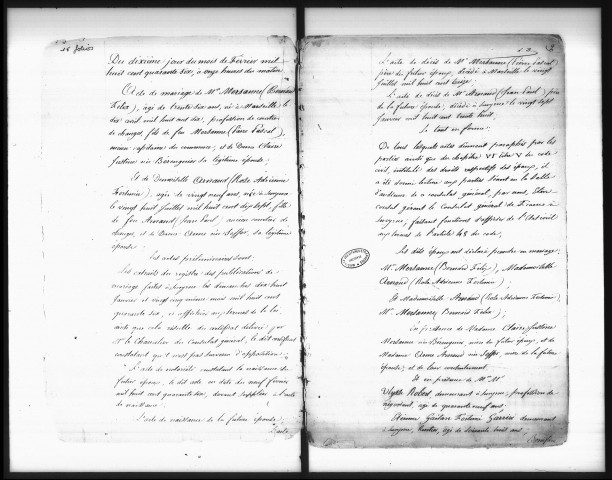 16 folios
Du dixième jour du mois de Février mil
huit cent quarante six, à onze heures du matin
Acte de mariage de Mr Mertanne (Bernard
Félix), âgé de trente six ans, né à Marseille le
dix août mil huit cent dix, profession de courtier
de change, fils de feu Mertanne (Pierre Pascal),
ancien capitaine de commerce, et de Dame Claire
Justine née Berengnier sa légitime épouse;
Et de Demoiselle Arnaud (Rose Adrienne
Fortunée), âgée de vingt neuf ans, née à Smyrne
le vingt huit Juillet mil huit cent dix sept, fille
de feu Arnaud (Jean Paul), ancien courtier de
change, et de Dame Anne née Saffon, sa légitime
épouse.
Les actes préliminaires sont:
Les extraits du registre des publications de
mariage faites à Smyrne les dimanches dix huit
Janvier et vingt cinq même mois mil huit cent
quarante six, et affichées aux termes de la loi,
ainsi que cela résulte du certificat délivré par
Mr le Chancelier du Consulat général, le dit certificat
constatant qu'il n'est pas survenu d'opposition;
L'acte de notoriété constatant la naissance du
futur époux, le dit acte en date du neuf février
mil huit cent quarante six, devant suppléer à l'acte
de naissance.
L'acte de naissance de la future épouse;
L'acte
2
L'acte de décès de Mr Mertanne (Pierre Pascal)
père du futur époux, décédé à Marseille le vingt
Juillet mil huit cent seize.
L'acte de décès de Mr Arnaud (Jean Paul) père
de la future épouse, décédé à Smyrne le vingt sept
Janvier mil huit cent vingt huit.
Le tout en forme.
De tous lesquels actes dûment paraphés par les
parties ainsi que du chapitre VI titre V du code
civil, intitulé des droits respectifs des époux, il
a été donné lecture aux parties étant en la salle
d'audience de ce consulat général, par nous, Élève
consul gérant le Consulat général de France à
Smyrne, faisant fonctions d'officier de l'État civil
aux termes de l'article 48 du code.
Les dits époux ont déclaré prendre en mariage;
Mr Mertanne (Bernard Félix), Mademoiselle
Arnaud (Rose Adrienne Fortunée);
Et Mademoiselle Arnaud (Rose Adrienne Fortunée),
Mr Mertanne, Bernard Félix);
en présence de Madame Claire Justine
Mertanne née Berengnier, mère du futur époux, et de
Madame Anne Arnaud née Saffon mère de la future
épouse, et de leur consentement.
Et en présence de Mr Mr
Robert, demeurant à Smyrne, profession de
négociant, âgé de quarante neuf ans,
Gaëtan Fortuné demeurant
à Smyrne, âgé de soixante huit ans;